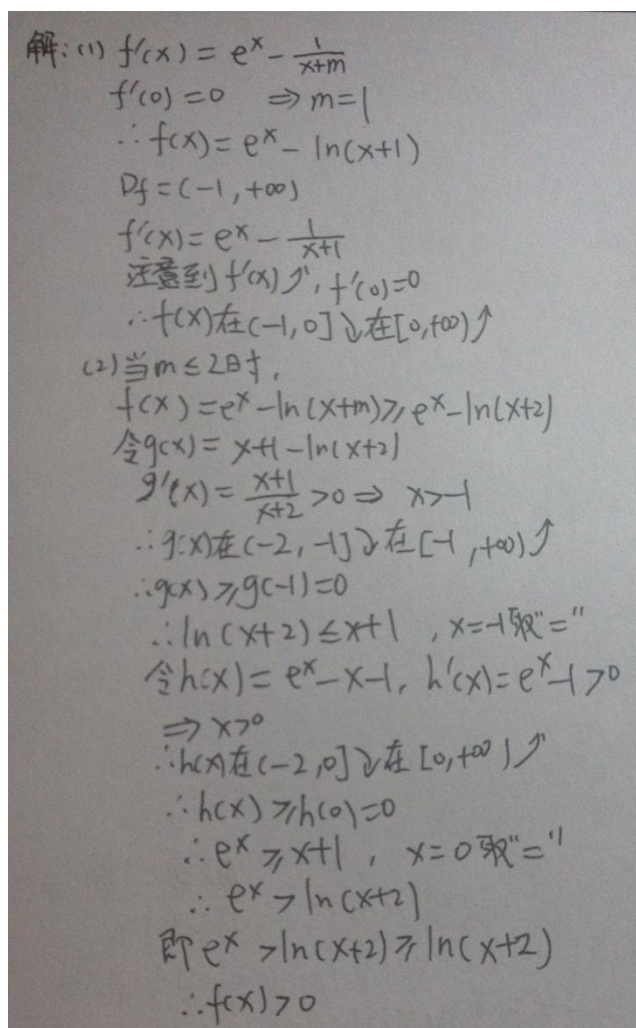 解:(1) f'(x) = e^x - 1/(x+m)
f'(0) = 0 ⇒ m=1
∴f(x) = e^x - ln(x+1)
Df = (-1, +∞)
f'(x) = e^x - 1/(x+1)
注意到 f'(x)↗, f'(0)=0
∴f(x)在(-1,0]↘在[0,+∞)↗
(2)当m≤2时,
f(x) = e^x - ln(x+m) ≥ e^x - ln(x+2)
令g(x) = x+1 - ln(x+2)
g'(x) = (x+1)/(x+2) > 0 ⇒ x>-1
∴g(x)在(-2,-1]↘在[-1,+∞)↗
∴g(x) ≥ g(-1) = 0
∴ln(x+2) ≤ x+1 , x=-1取"="
令h(x) = e^x - x - 1, h'(x) = e^x - 1 > 0
⇒ x>0
∴h(x)在(-2,0]↘在[0,+∞)↗
∴h(x) ≥ h(0) = 0
∴e^x ≥ x+1 , x=0取"="
∴e^x > ln(x+2)
即e^x > ln(x+2) ≥ ln(x+2)
∴f(x)>0